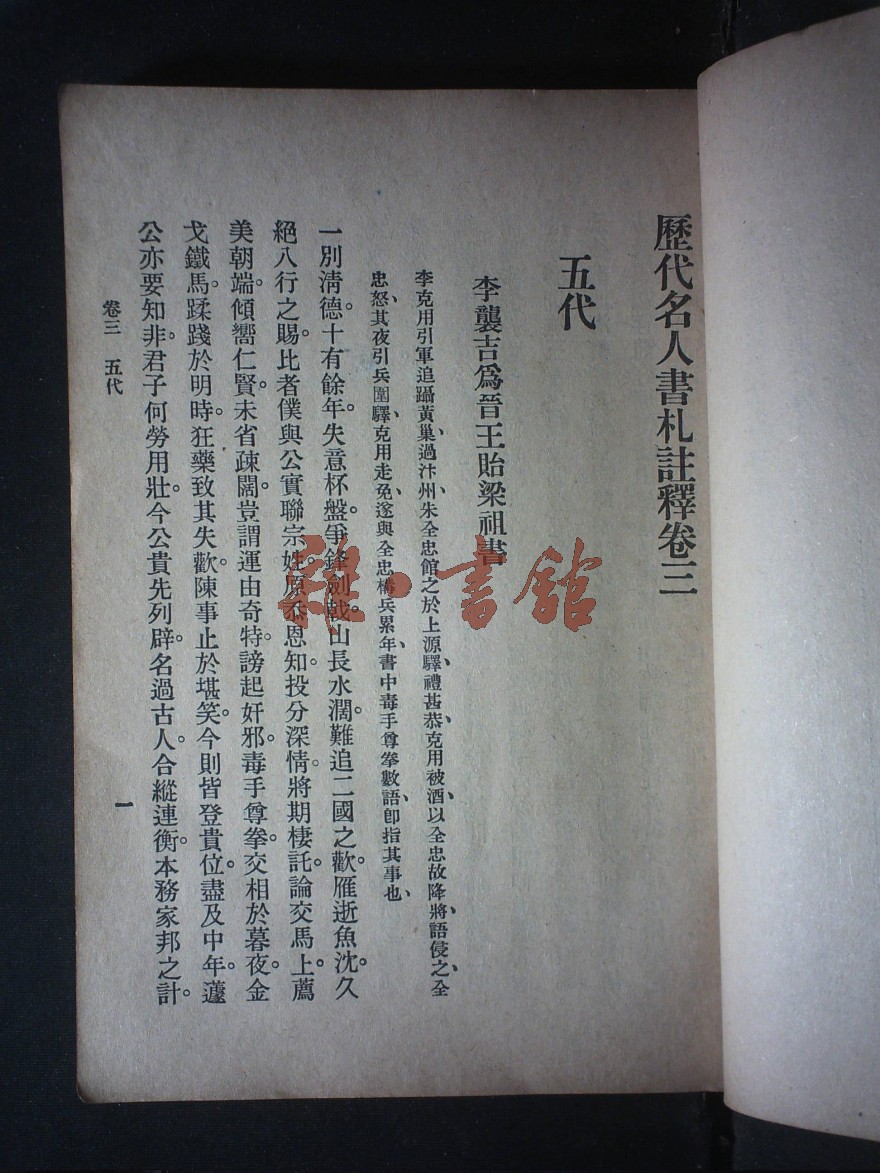 歷代名人書札註釋卷三
五代
李襲吉爲晉王貽梁祖書
李克用引軍追躡黃巢、過汴州、朱全忠館之於上源驛、禮甚恭、克用被酒、以全忠故降將、語侵之、全
忠怒、其夜引兵圍驛、克用走免、遂與全忠構兵累年、書中毒手尊拳數語、卽指其事也、
一別淸德。十有餘年。失意杯盤。爭鋒劍戟。山長水濶。難追二國之歡。雁逝魚沈。久
絕八行之賜。比者僕與公實聯宗姓。原忝恩知。投分深情。將期棲託。論交馬上。薦
美朝端。傾嚮仁賢。未省疎闊。豈謂運由奇特。謗起奸邪。毒手尊拳。交相於暮夜。金
戈鐵馬。蹂踐於明時。狂藥致其失歡。陳事止於堪笑。今則皆登貴位。盡及中年。蘧
公亦要知非。君子何勞用壯。今公貴先列辟。名過古人。合縱連衡。本務家邦之計。
卷三　五代
一
雜·書館